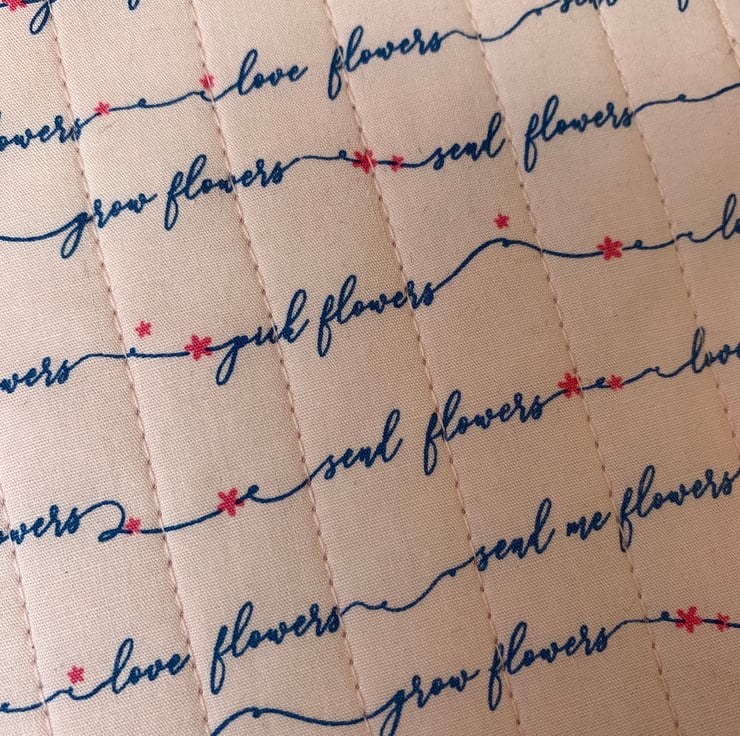 love flowers
owers grow flowers send flowers
pick flowers
wers send flowers love
owers love flowers send me flowers
grow flowers